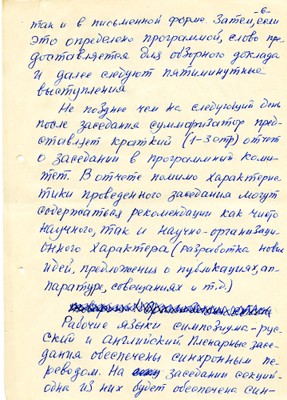 -6-
так и в письменной форме. Затем, если
это определено программой, слово пре-
доставляется для обзорного доклада
И далее следуют пятиминутные
выступления.
Не позднее чем на следующий день
после заседания суммаризатор пред-
ставляет краткий (1-3 стр) отчет
о заседании в программный коми-
тет. В отчете помимо характерис-
тики проведенного заседания могут
содержаться рекомендации как чисто
научного, так и научно-организаци-
онного характера (разработка новых
идей, предложения о публикациях, ап-
паратуре, совещаниях и т.д.)
Рабочие языки симпозиума - рус-
ский и английский. Пленарные засе-
дания обеспечены синхронным пе-
реводом. На заседании секций-
одна из них будет обеспечена син-